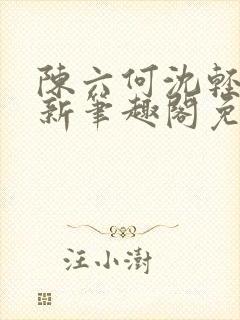 陳六何沈輕
新筆趣閣免
汪小澍